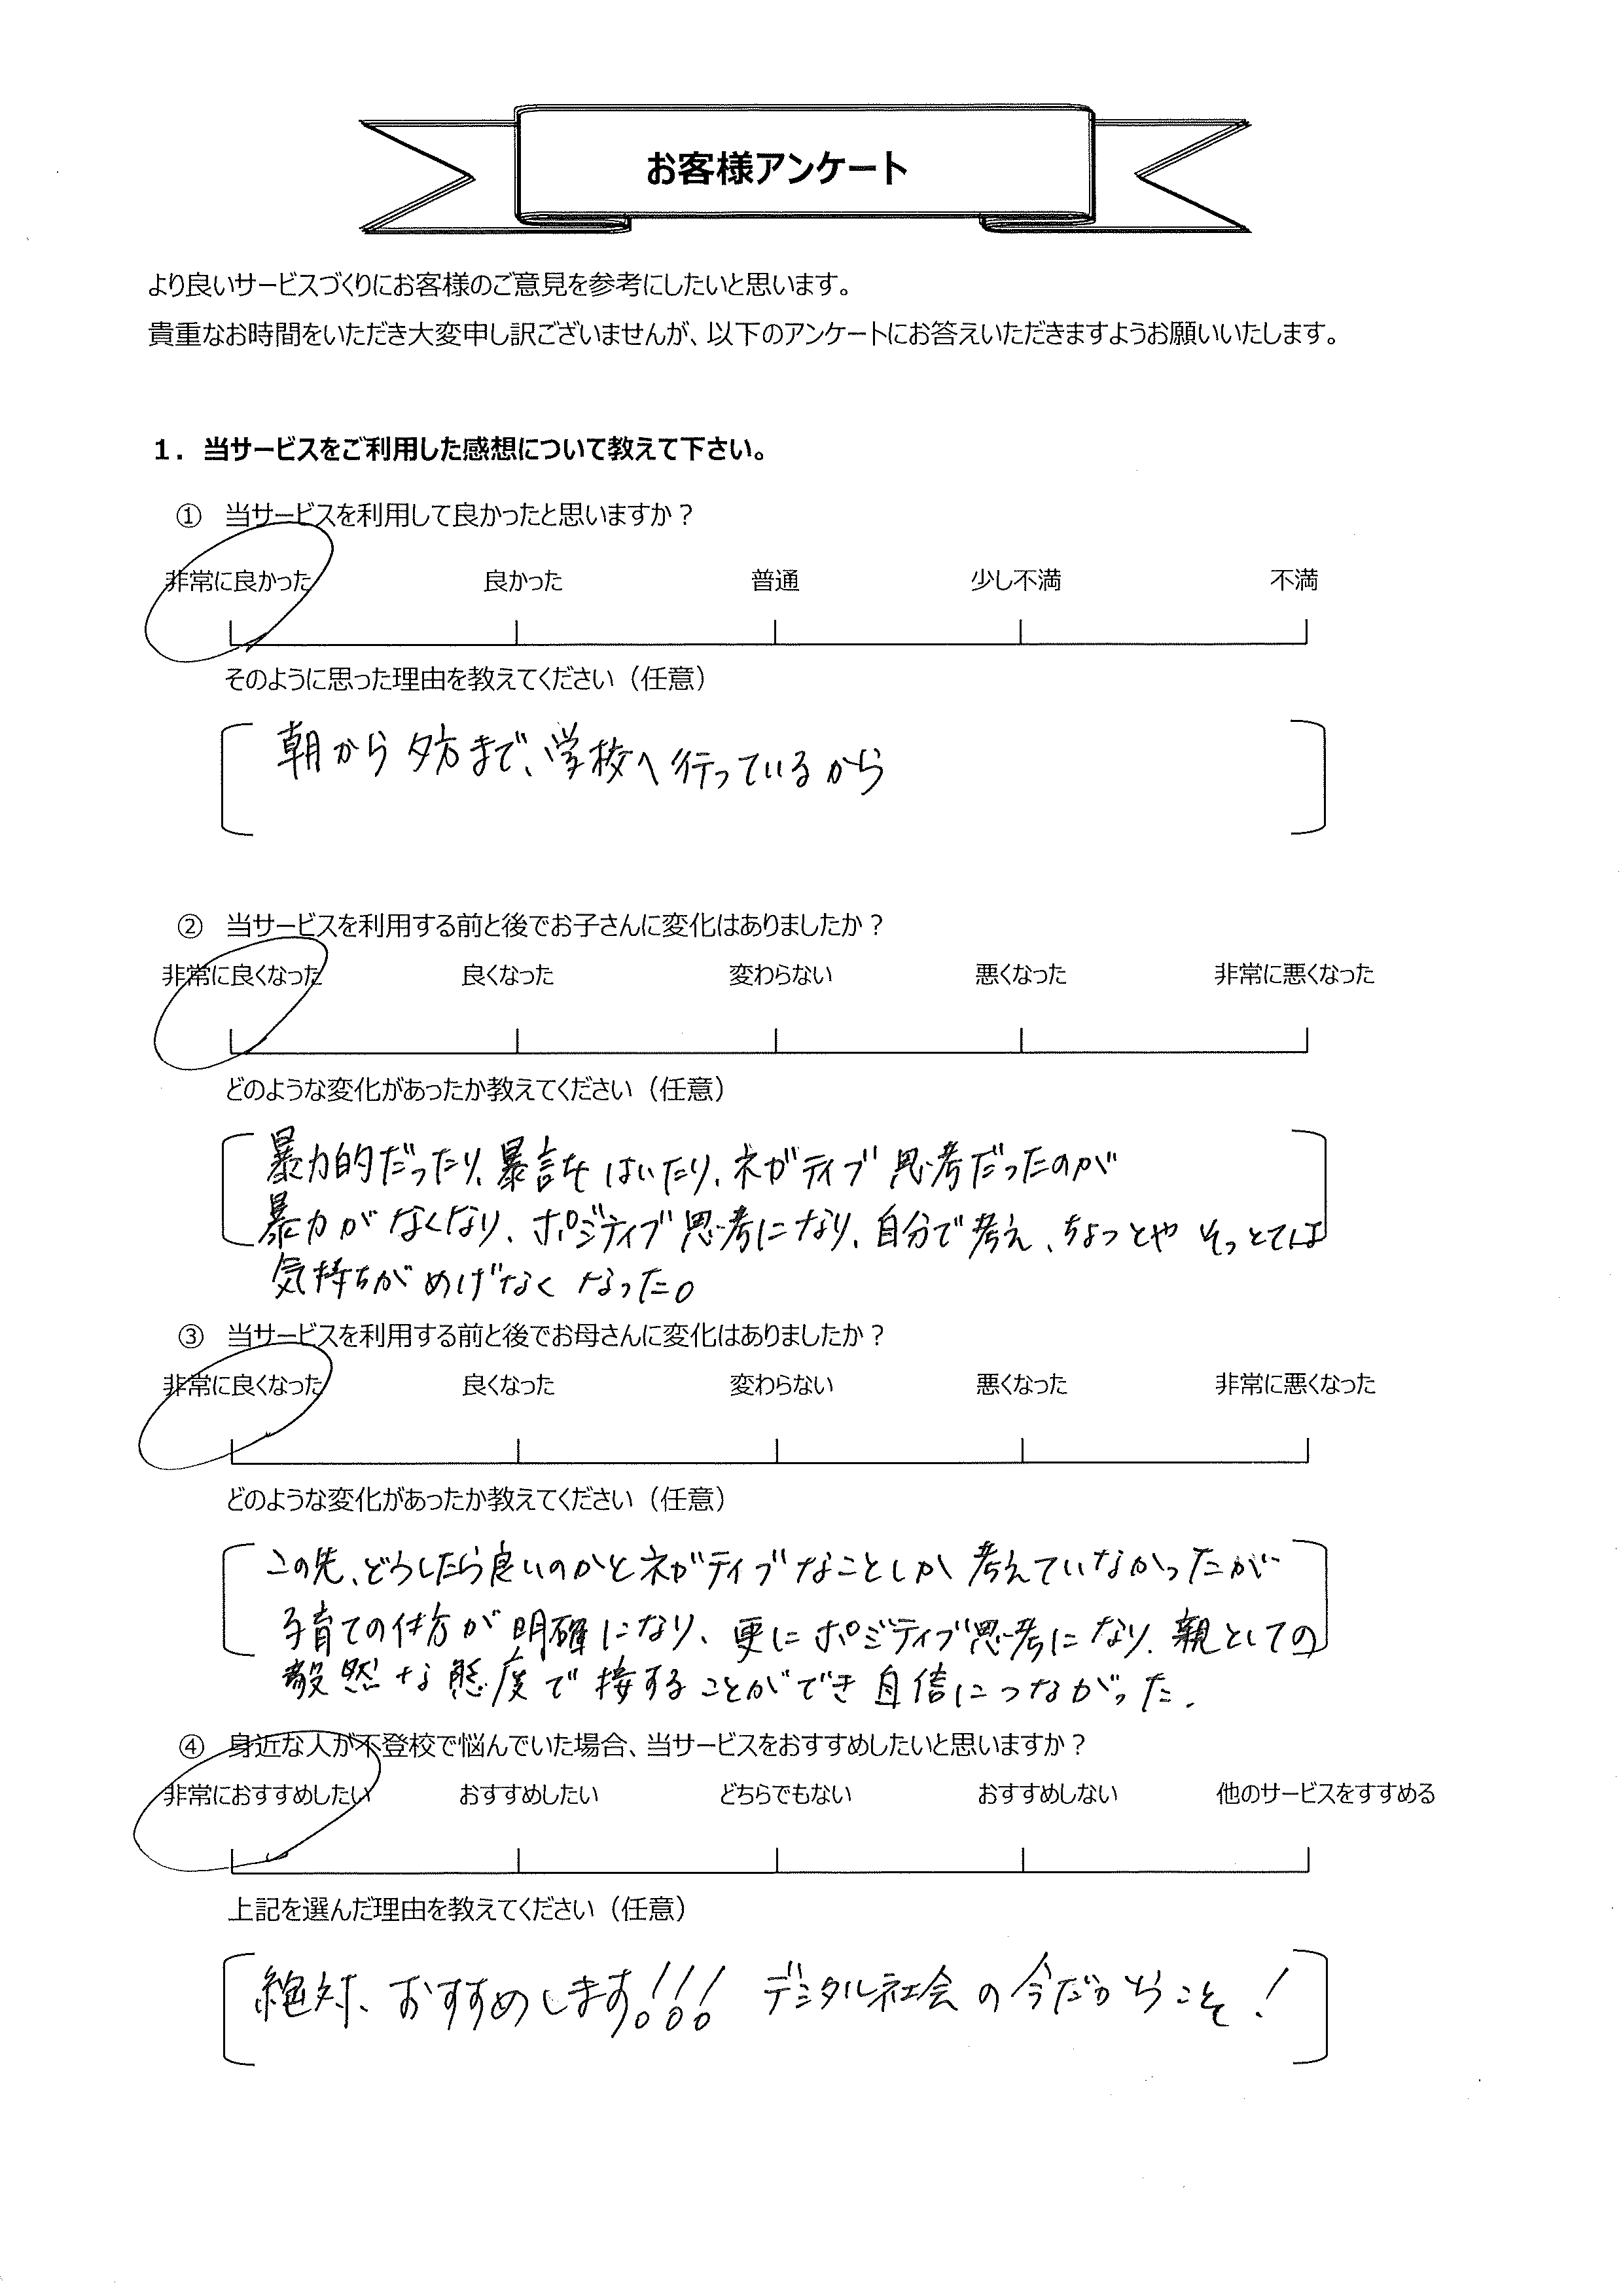 お客様アンケート
より良いサービスづくりにお客様のご意見を参考にしたいと思います。
貴重なお時間をいただき大変申し訳ございませんが、以下のアンケートにお答えいただきますようお願いいたします。
1. 当サービスをご利用した感想について教えて下さい。
① 当サービスを利用して良かったと思いますか？
非常に良かった 良かった 普通 少し不満 不満
そのように思った理由を教えてください（任意）
朝から夕方まで、学校へ行っているから
② 当サービスを利用する前と後でお子さんに変化はありましたか？
非常に良くなった 良くなった 変わらない 悪くなった 非常に悪くなった
どのような変化があったか教えてください（任意）
暴力的だったり、暴言をはいたり、ネガティブ思考だったのが
暴力がなくなり、ポジティブ思考になり、自分で考え、ちょっとやそっとでは
気持ちがめげなくなった。
③ 当サービスを利用する前と後でお母さんに変化はありましたか？
非常に良くなった 良くなった 変わらない 悪くなった 非常に悪くなった
どのような変化があったか教えてください（任意）
この先、どうしたら良いのかとネガティブなことしか考えていなかったが
子育ての仕方が明確になり、更にポジティブ思考になり、親としての
毅然な態度で接することができ自信につながった.
④ 身近な人が不登校で悩んでいた場合、当サービスをおすすめしたいと思いますか？
非常におすすめしたい おすすめしたい どちらでもない おすすめしない 他のサービスをすすめる
上記を選んだ理由を教えてください（任意）
絶対、おすすめします!!! デジタル社会の今だからこそ!